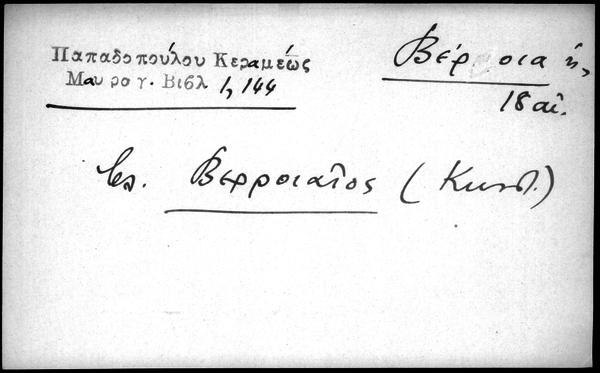 Παπαδοπούλου Κεραμέως
Μαυρογ. Βιβλ 1, 144
Βέρ οια ἡ,
18 αἰ.
Βλ. Βερροιαῖος (Κωνστ.)